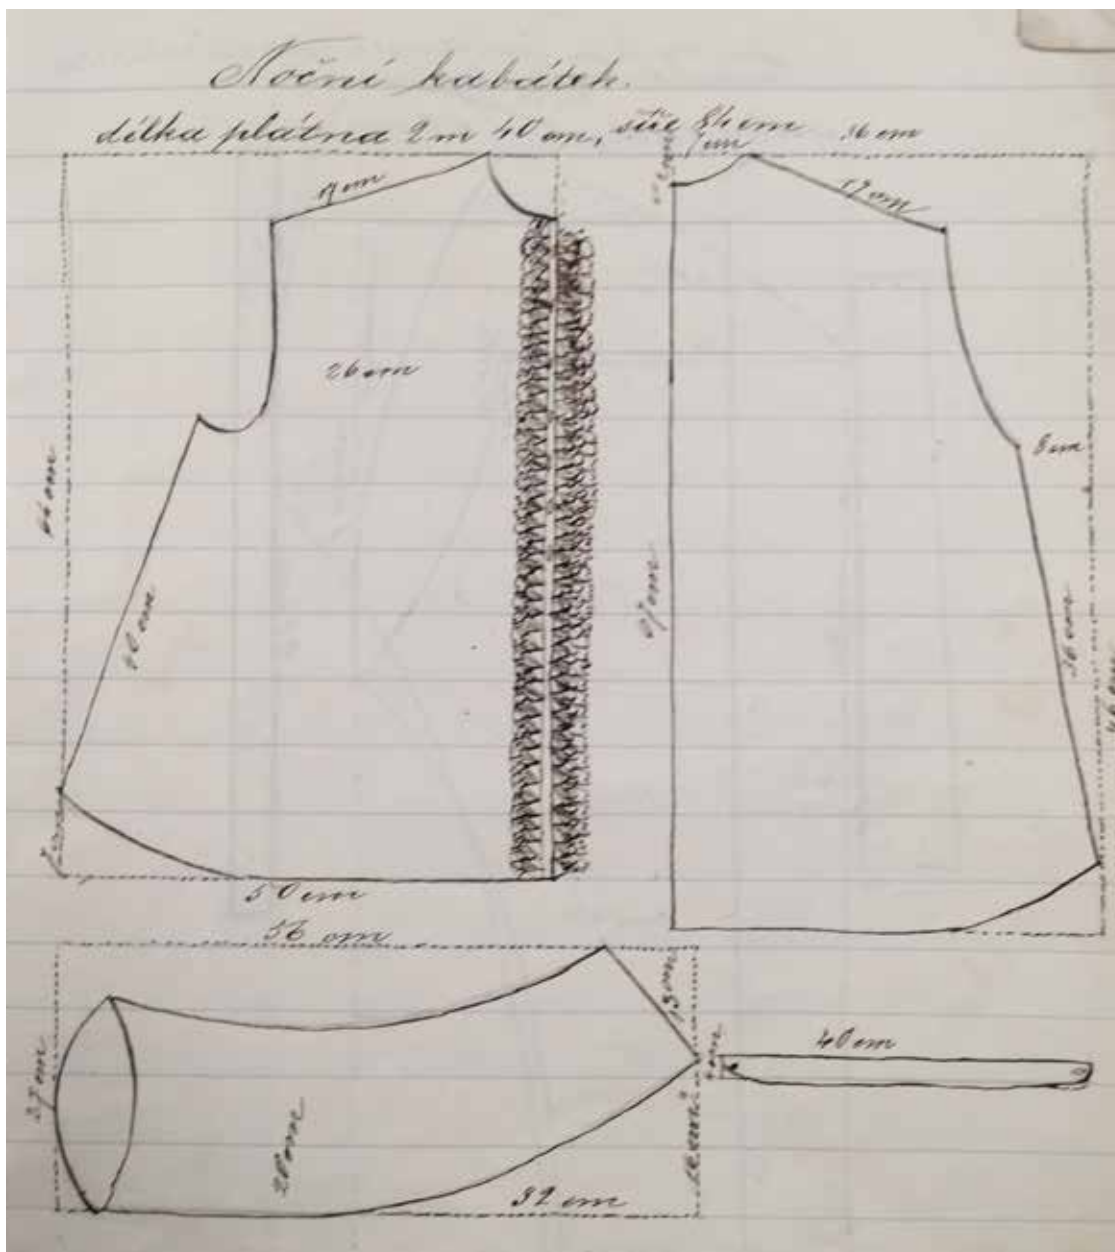 Noční kabátek.
délka plátna 2 m 40 cm, šíře 84 cm
7 cm
36 cm
17 cm
17 cm
26 cm
8 cm
66 cm
40 cm
67 cm
36 cm
50 cm
56 cm
13 cm
40 cm
37 cm
28 cm
32 cm